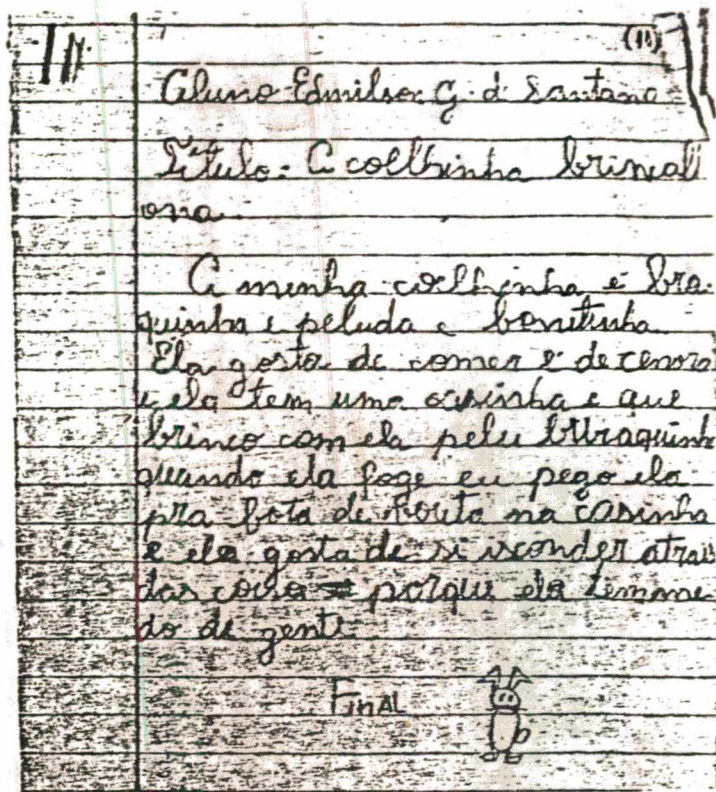 (11)
Aluno Edmilson G. d. Santana
Título: A coelhinha brincalh
ona.
A minha coelhinha é bra
quinha e peluda e bonitinha
Ela gosta de comer e de cenora
e ela tem uma casinha e que
brinco com ela pelu buraquinho
quando ela foge eu pego ela
pra bota de houto na casinha
e ela gosta de si isconder atrais
das coisa porque ela temme
do de gente
FinAL